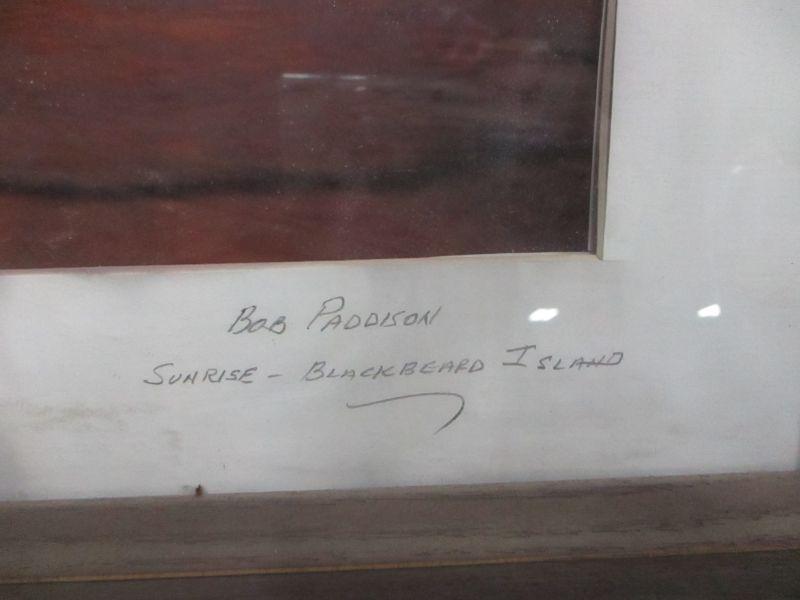 BOB PADDISON
SUNRISE - BLACKBEARD ISLAND